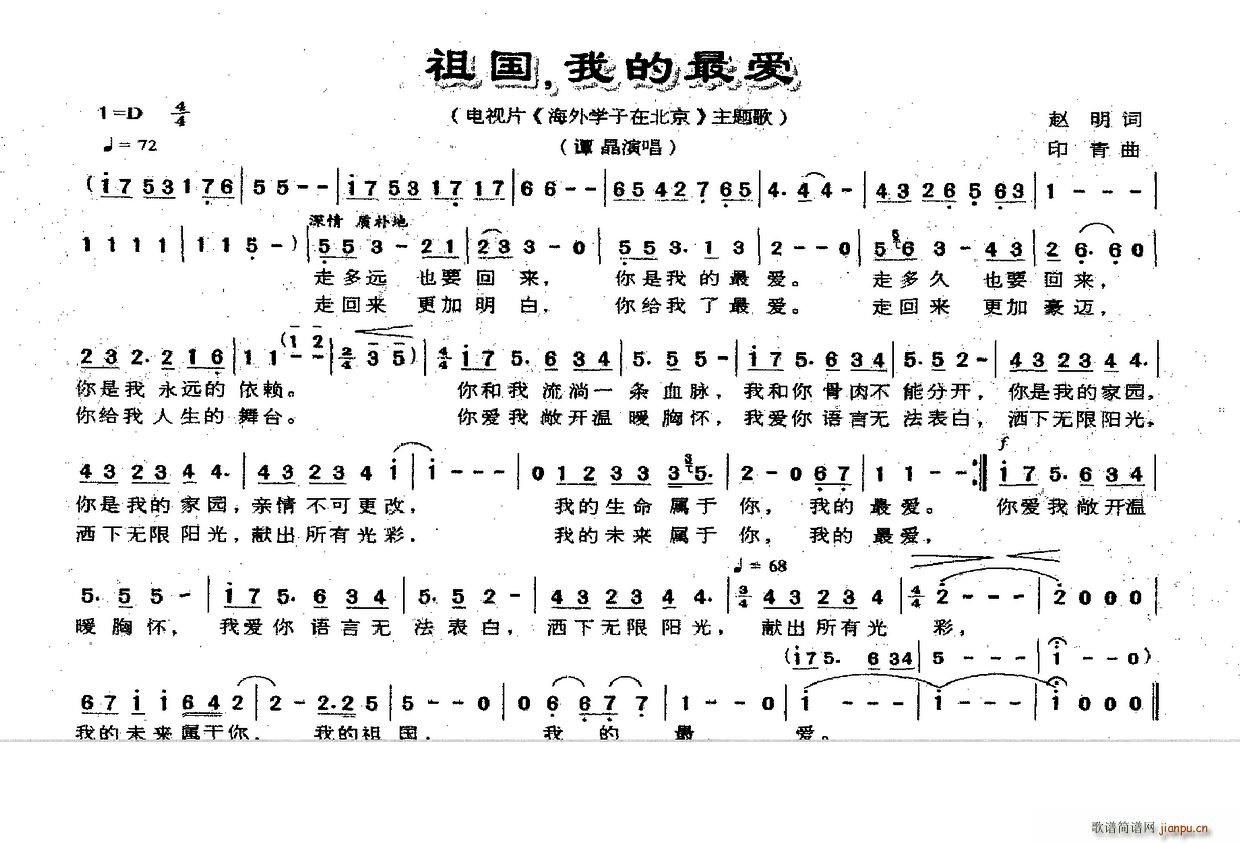 祖国,我的最爱
1=D 4/4
（电视片《海外学子在北京》主题歌）
赵 明 词
♩=72
（谭 晶演唱）
印 青 曲
(i753176 | 55-- | i75317171 7 | 66-- | 6542765 | 4. 44- | 43265 63 | 1---|
深情 质朴地
1111 | 115-) | 553-21 | 233-0 | 553.13 | 2--0 | 563-43 | 26.60 |
走多远 也要回 来， 你是我的最爱。 走多久 也要回来，
走回来 更加明 白， 你给我了最爱。 走回来 更加豪迈，
(1 2
232.216 | 11-- | 2/4 3 5) | 4/4 i75.634 | 5.55- | i75.634 | 5.52- | 432344. |
你是我 永远的 依赖。 你和我 流淌一 条血脉，我和你 骨肉不 能分开，你是我的家园，
你给我 人生的 舞台。 你爱我 敞开温 暖胸怀，我爱你 语言无 法表白，洒下无限阳光，
f
432344. | 43234i | i--- | 0123335. | 2-067 | 11-- :| i75.634 |
你是我的 家园，亲情不可更改， 我的生命 属于 你， 我的 最爱。 你爱我敞开温
洒下无限 阳光，献出所有光彩， 我的未来 属于 你， 我的 最爱，
♩=68
5.55- | i75.634 | 5.52- | 4323 44. | 3/4 43234 | 4/4 2--- | 2000 |
暖胸怀， 我爱你 语言无 法表白， 洒下无限 阳光， 献出所有光 彩，
(i75. 634 | 5--- | 1--0)
67ii6422 | 2-2.25 | 5--0 | 06677 | 1--0 | i--- | i--- | i000 ‖
我的未来属于你， 我的祖 国， 我 的 最 爱。
歌谱简谱网 jianpu.cn